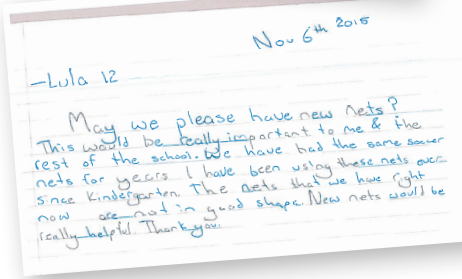 Nov 6th 2015
-Lula 12
May we please have new nets?
This would be really important to me & the
rest of the school. We have had the same soccer
nets for years I have been using these nets ever
since Kindergarten. The nets that we have right
now are not in good shape. New nets would be
really helpful. Thank you.